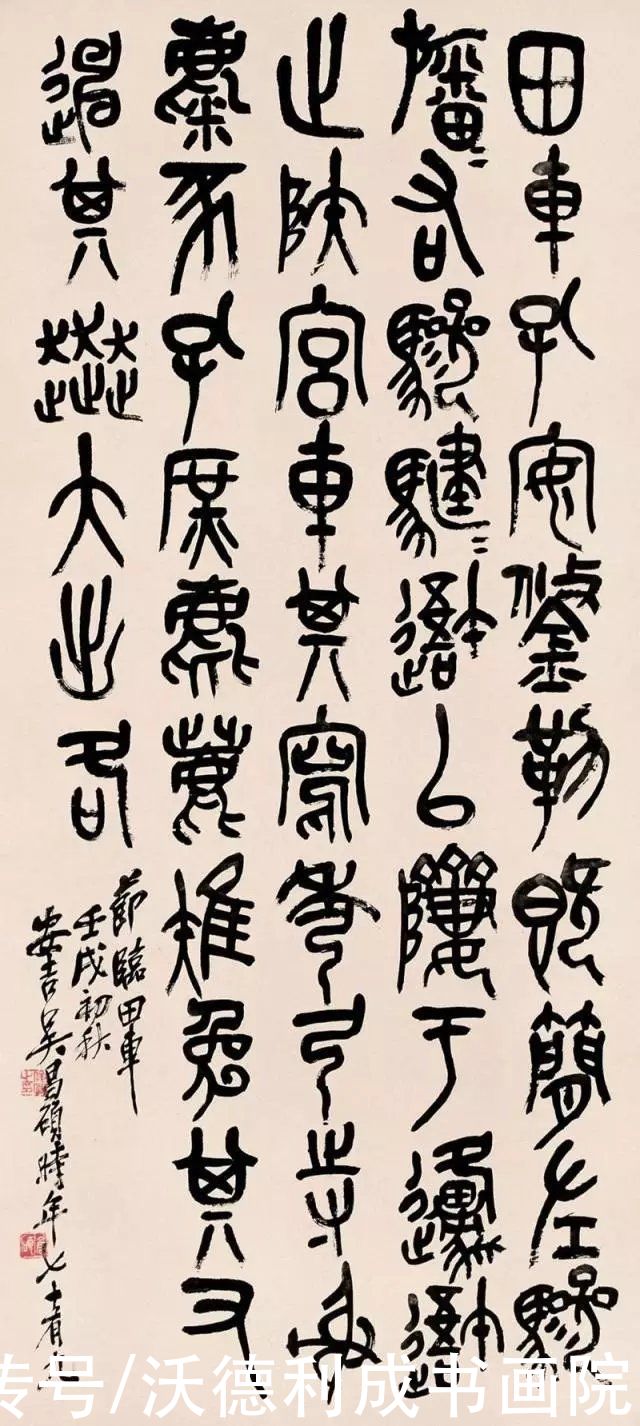 田車孔安鋚勒既簡左驂
旛=右驂騝=以隮于邍
止陕宮車其寫秀弓寺射
麋豕孔庶麀鹿雉兔其又
其大出各
節臨田車
壬戌初秋
安吉吳昌碩時年七十有九
号/沃德利成书画院